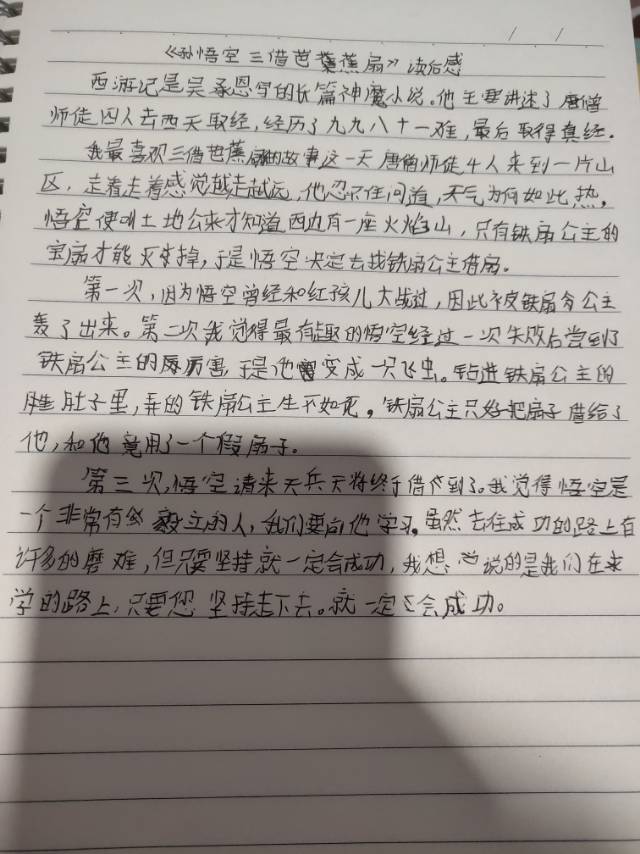 《孙悟空三借芭蕉扇》读后感
西游记是吴承恩写的长篇神魔小说。他主要讲述了唐僧
师徒四人去西天取经，经历了九九八十一难，最后取得真经.
我最喜欢三借芭蕉扇的故事这一天唐僧师徒4人来到一片山
区，走着走着感觉越走越远，他忍不住问道，天气为何如此热，
悟空便叫土地公来才知道西边有一座火焰山，只有铁扇公主的
宝扇才能灭掉，于是悟空决定去找铁扇公主借扇。
第一次，因为悟空曾经和红孩儿大战过，因此被铁扇公主
轰了出来。第二次我觉得最有趣的悟空经过一次失败后尝到了
铁扇公主的厉害，于是他变成一只飞虫。钻进铁扇公主的
肚子里，弄的铁扇公主生不如死，铁扇公主只好把扇子借给了
他，和他竟用了一个假扇子.
第三次，悟空请来天兵天将终于借到了。我觉得悟空是
一个非常有毅立的人，我们要向他学习。虽然去往成功的路上有
许多的磨难，但只要坚持就一定会成功，我想说的是我们在求
学的路上，只要您坚持走下去。就一定会成功。